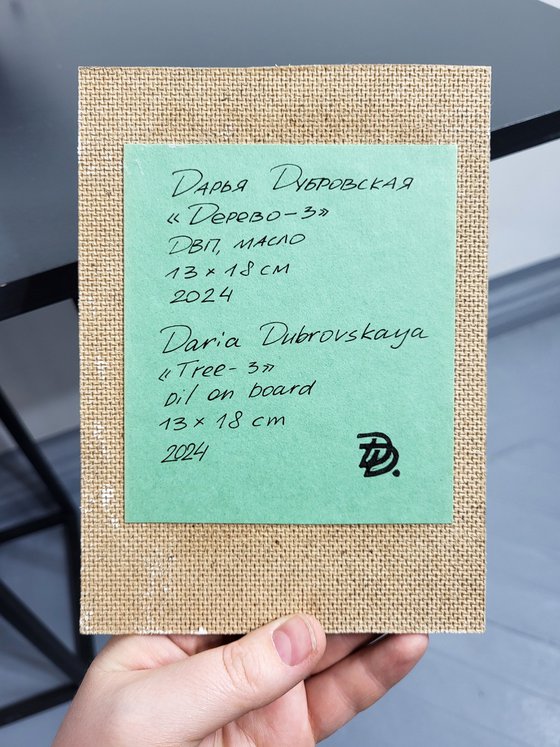 Дарья Дубровская
«Дерево-3»
ДВП, масло
13 × 18 см
2024
Daria Dubrovskaya
«Tree-3»
oil on board
13 × 18 cm
2024
DD.